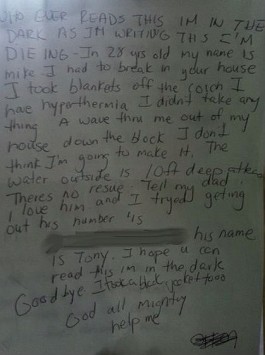 WHO EVER READS THIS IM IN THE
DARK AS IM WRITING THIS I'M
DIEING - Im 28 yrs old my name is
mike I had to break in your house
I took blankets off the couch I
hae hypothermia I didnt take any
thing A wave thru me out of my
house down the block I dont
think I'm going to make it. The
water outside is 10ft deep
Theres no resue. Tell my dad
I love him and I tryed geting
out his number is
his name
is Tony. I hope u can
read this im in the dark
Goodbye I took a black jacket tooo
God all mighty
help me